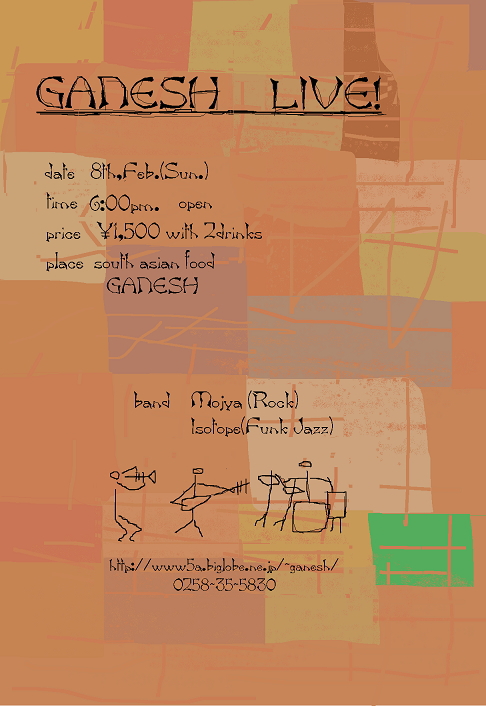 GANESH LIVE!
date 8th,Feb.(Sun.)
time 6:00pm. open
price ¥1,500 with 2drinks
place south asian food
GANESH
band Mojya (Rock)
Isotope(Funk Jazz)
http://www5a.biglobe.ne.jp/~ganesh/
0258-35-5830